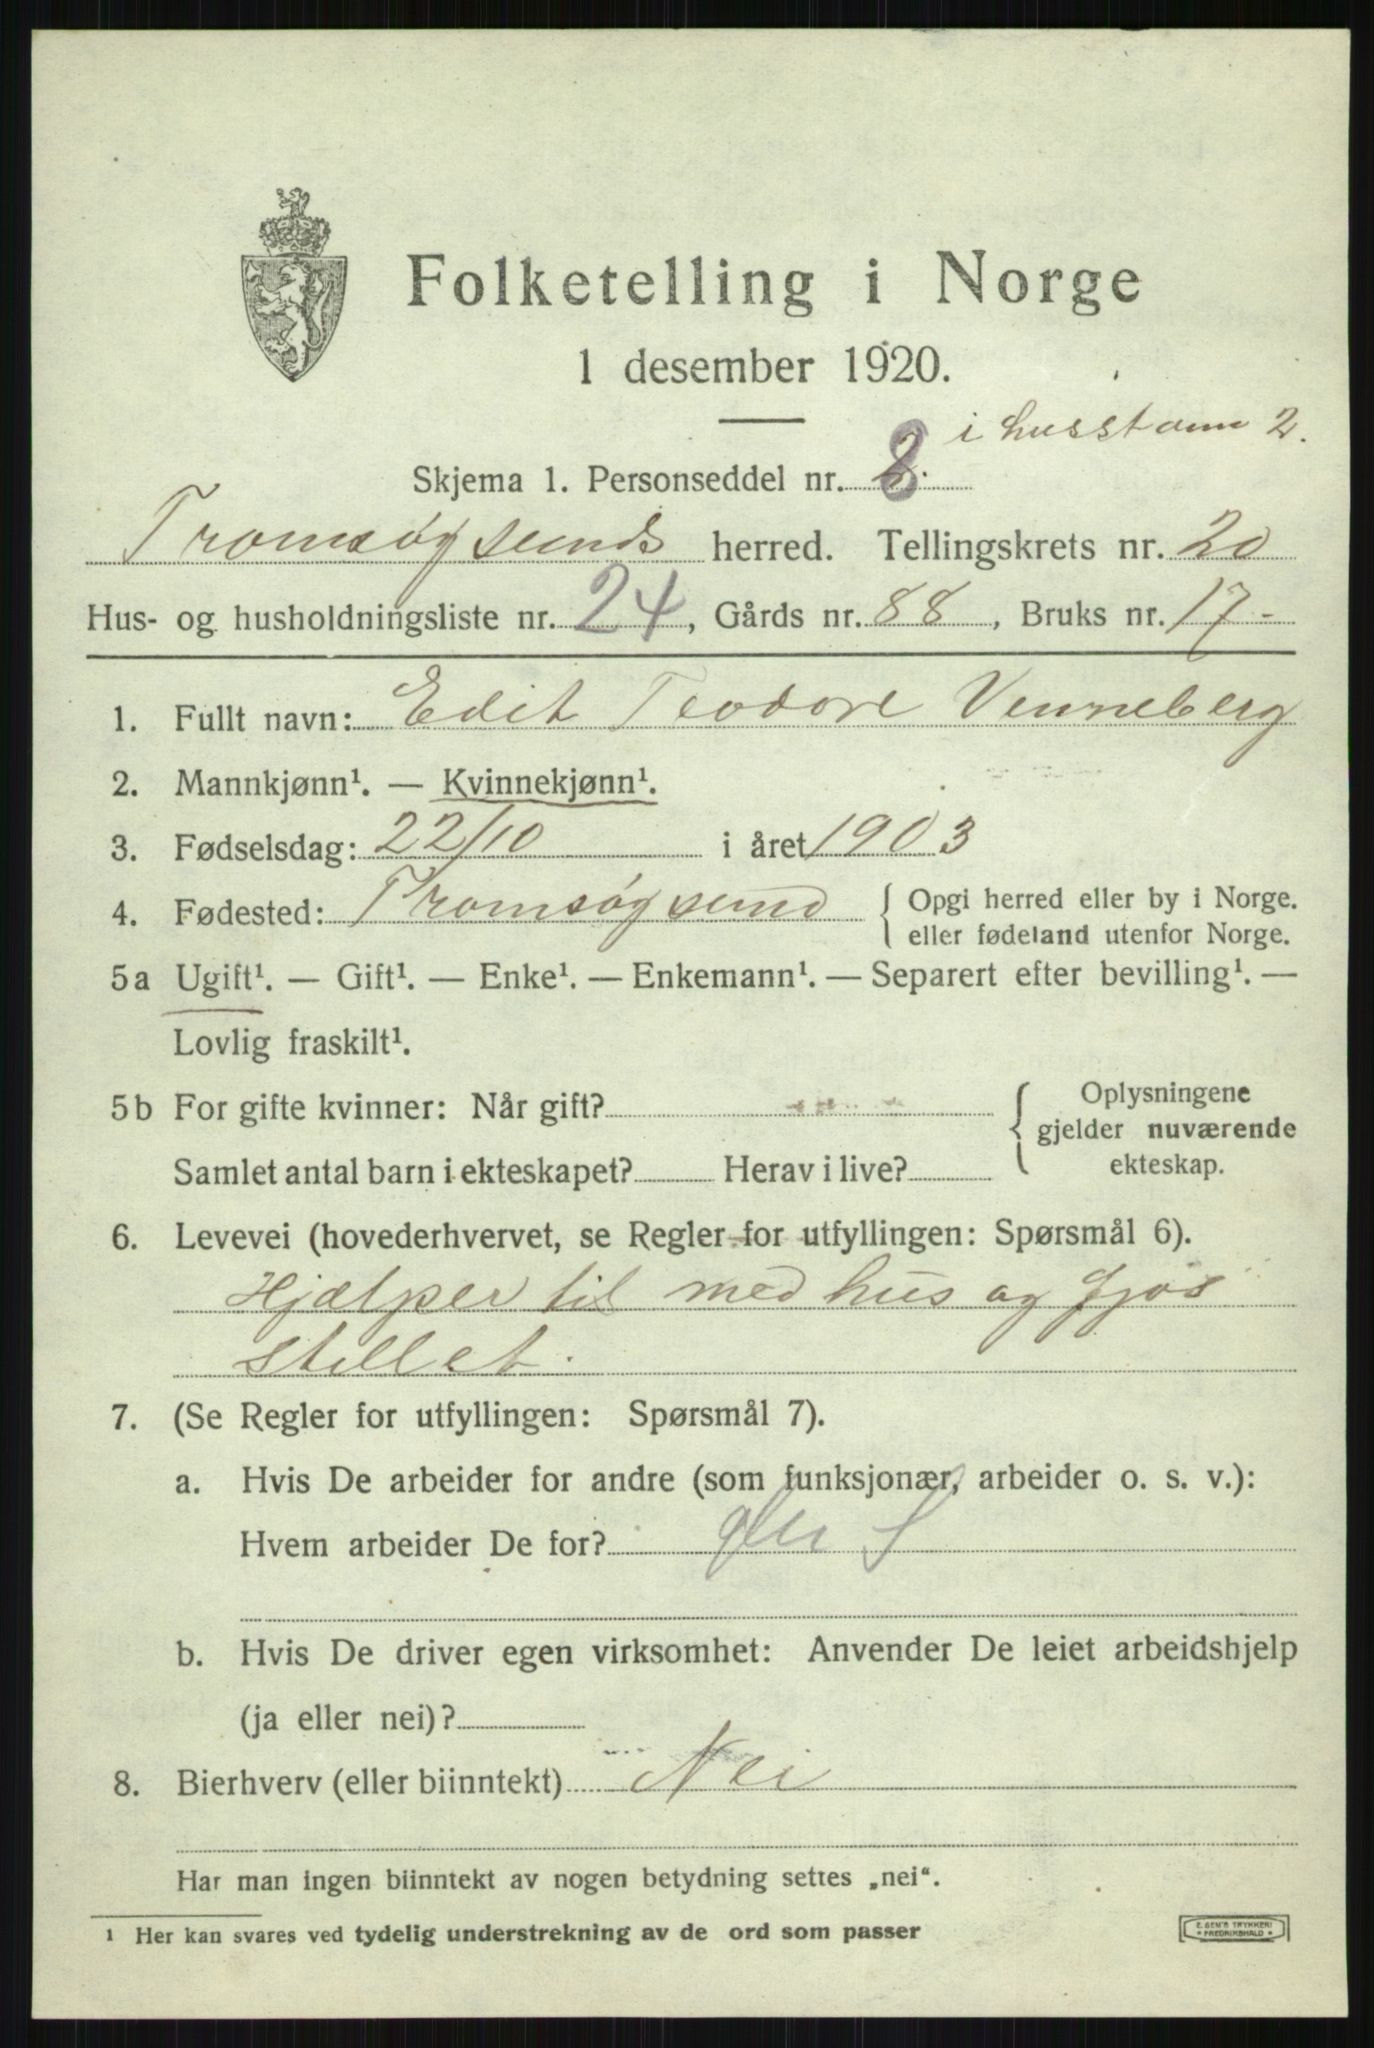 Folketelling i Norge
1 desember 1920.
i husstann 2.
Skjema 1. Personseddel nr. 8
Tromsøysunds herred. Tellingskrets nr. 20
Hus- og husholdningsliste nr. 24, Gårds nr. 88, Bruks nr. 17-
1. Fullt navn: Edit Teodore Venneberg
2. Mannkjønn¹. — Kvinnekjønn¹.
3. Fødselsdag: 22/10 i året 1903
4. Fødested: Tromsøysund { Opgi herred eller by i Norge.
eller fødeland utenfor Norge.
5a Ugift¹. — Gift¹. — Enke¹. — Enkemann¹. — Separert efter bevilling¹. —
Lovlig fraskilt¹.
5b For gifte kvinner: Når gift?
Samlet antal barn i ekteskapet? Herav i live?
{ Oplysningene
gjelder nuværende
ekteskap.
6. Levevei (hovederhvervet, se Regler for utfyllingen: Spørsmål 6).
Hjælper til med hus og fjøs
stellet.
7. (Se Regler for utfyllingen: Spørsmål 7).
a. Hvis De arbeider for andre (som funksjonær, arbeider o. s. v.):
Hvem arbeider De for?
b. Hvis De driver egen virksomhet: Anvender De leiet arbeidshjelp
(ja eller nei)?
8. Bierhverv (eller biinntekt) Nei
Har man ingen biinntekt av nogen betydning settes „nei“.
¹ Her kan svares ved tydelig understrekning av de ord som passer
E. SEM'S TRYKKERI
* FREDRIKSHALD *